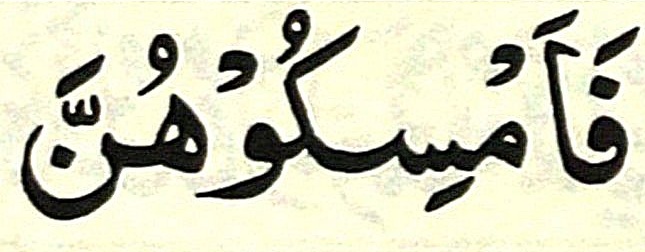 فَاَمْسِكُوْهُنَّ